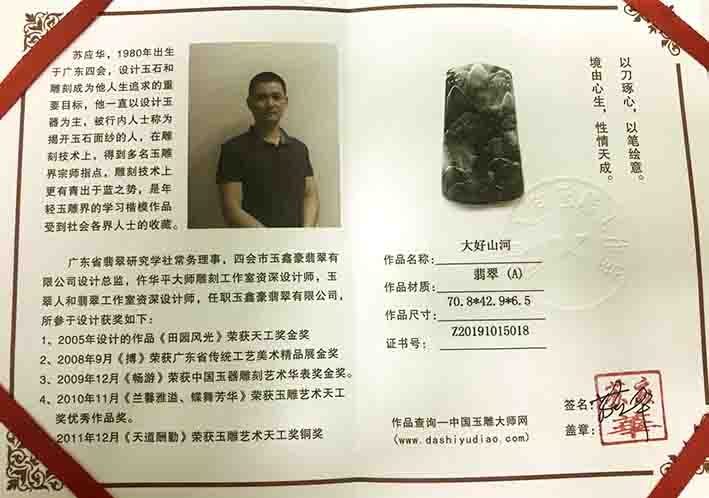 苏应华，1980年出生
于广东四会，设计玉石和
雕刻成为他人生追求的重
要目标，他一直以设计玉
器为主，被行内人士称为
揭开玉石面纱的人，在雕
刻技术上，得到多名玉雕
界宗师指点，雕刻技术上
更有青出于蓝之势，是年
轻玉雕界的学习楷模作品
受到社会各界人士的收藏。
广东省翡翠研究学社常务理事，四会市玉鑫豪翡翠有
限公司设计总监，仵华平大师雕刻工作室资深设计师，玉
翠人和翡翠工作室资深设计师，任职玉鑫豪翡翠有限公司，
所参于设计获奖如下：
1、2005年设计的作品《田园风光》荣获天工奖金奖
2、2008年9月《搏》荣获广东省传统工艺美术精品展金奖
3、2009年12月《畅游》荣获中国玉器雕刻艺术华表奖金奖。
4、2010年11月《兰馨雅溢、蝶舞芳华》荣获玉雕艺术天工
奖优秀作品奖。
2011年12月《天道酬勤》荣获玉雕艺术天工奖铜奖
以刀琢心，以笔绘意。
境由心生，性情天成。
作品名称：大好山河
作品材质：翡翠（A）
作品尺寸：70.8*42.9*6.5
证书号：Z20191015018
作品查询一中国玉雕大师网
(www.dashiyudiao.com)
签名：
盖章：